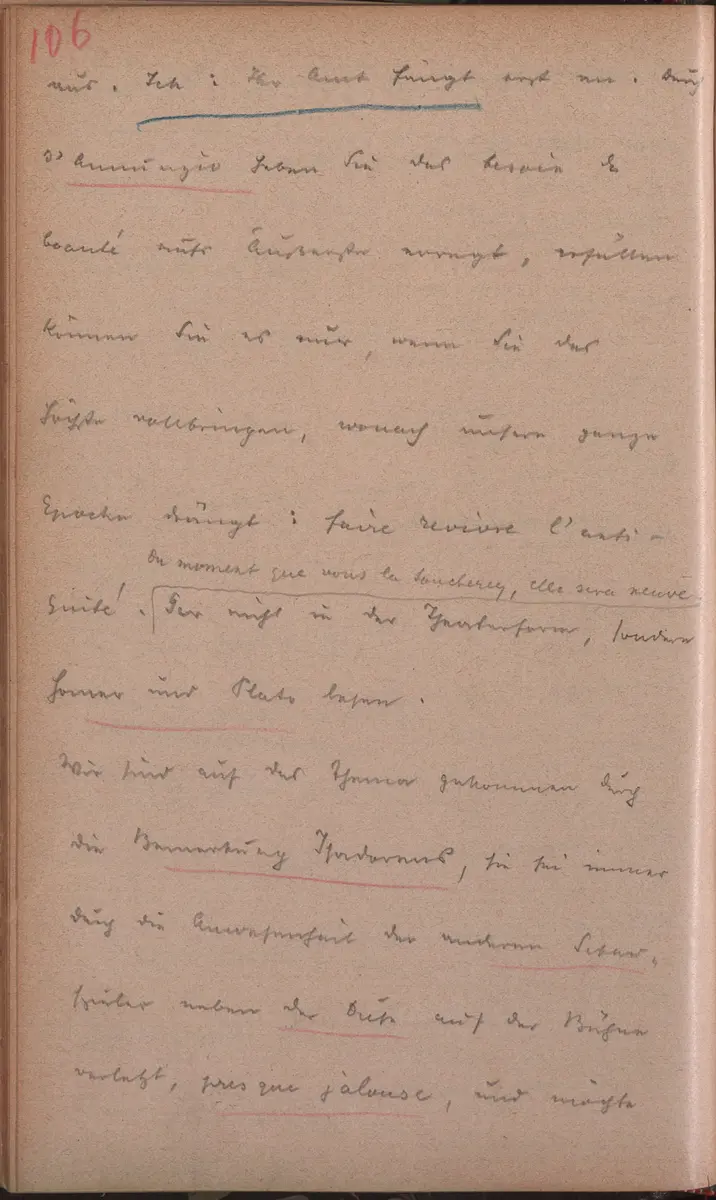 106
aus. Ich: Ihr Amt fängt erst an. Durch
d'Annunzio haben Sie das besoin de
beauté aufs Äusserste erregt, erfüllen
können Sie es nur, wenn Sie das
Höchste vollbringen, wonach unsere ganze
Epoche drängt: faire revivre l'anti-
Du moment que vous la toucherez, elle sera neuve
quité. Gar nicht in der Theaterform, sondern
Homer und Plato lesen.
Wir sind auf das Thema gekommen durch
die Bemerkung Isadoras, sie sei immer
durch die Anwesenheit der anderen Schau-
spieler neben der Duse auf der Bühne
verletzt, presque jalouse, und möchte